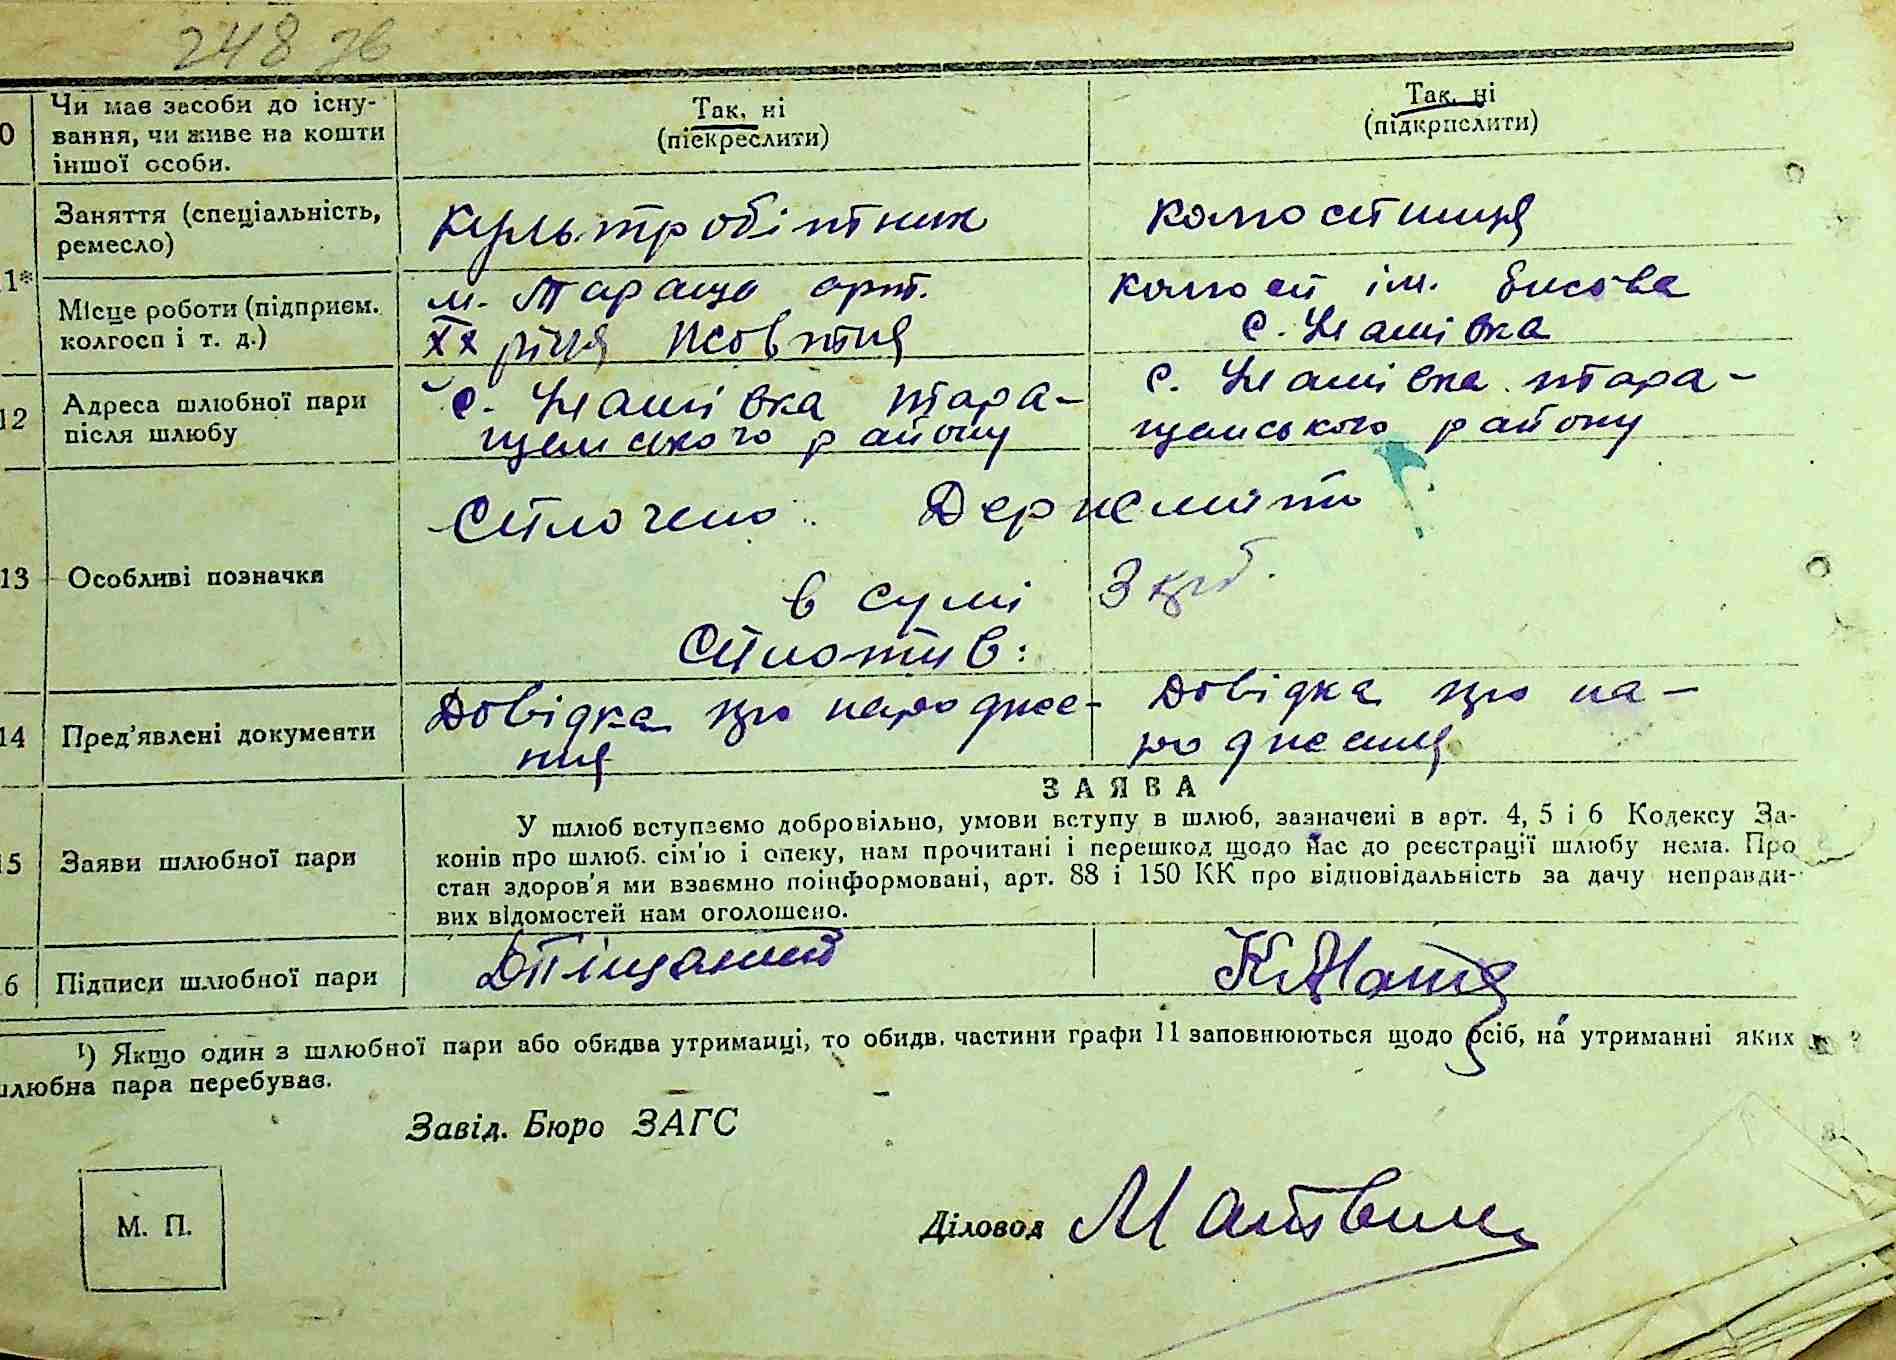 248 зв
10 Чи має засоби до існу-
вання, чи живе на кошти
іншої особи.
Так, ні
(піекреслити)
Так, ні
(підкрпслити)
11* Заняття (спеціальність,
ремесло)
Культробітник
колгоспниця
Місце роботи (підприєм.
колгосп і т. д.)
м. Тараща арт.
ХХ річчя Жовтня
колгосп ім.
с. Улашівка
12 Адреса шлюбної пари
після шлюбу
с. Улашівка Тара-
щанського району
с. Улашівка Тара-
щанського району
13 Особливі позначки
Сплочено: Держмито
в сумі 3 крб.
Сплотив:
14 Пред'явлені документи
Довідка про народже-
ння
Довідка про на-
родження
ЗАЯВА
15 Заяви шлюбної пари
У шлюб вступаємо добровільно, умови вступу в шлюб, зазначені в арт. 4, 5 і 6 Кодексу За-
конів про шлюб. сім'ю і опеку, нам прочитані і перешкод щодо нас до реєстрації шлюбу нема. Про
стан здоров'я ми взаємно поінформовані, арт. 88 і 150 КК про відповідальність за дачу неправди-
вих відомостей нам оголошено.
16 Підписи шлюбної пари
ДПіщаний
¹) Якщо один з шлюбної пари або обидва утриманці, то обидв. частини графи 11 заповнюються щодо осіб, на утриманні яких
шлюбна пара перебуває.
Завід. Бюро ЗАГС
М. П.
Діловод